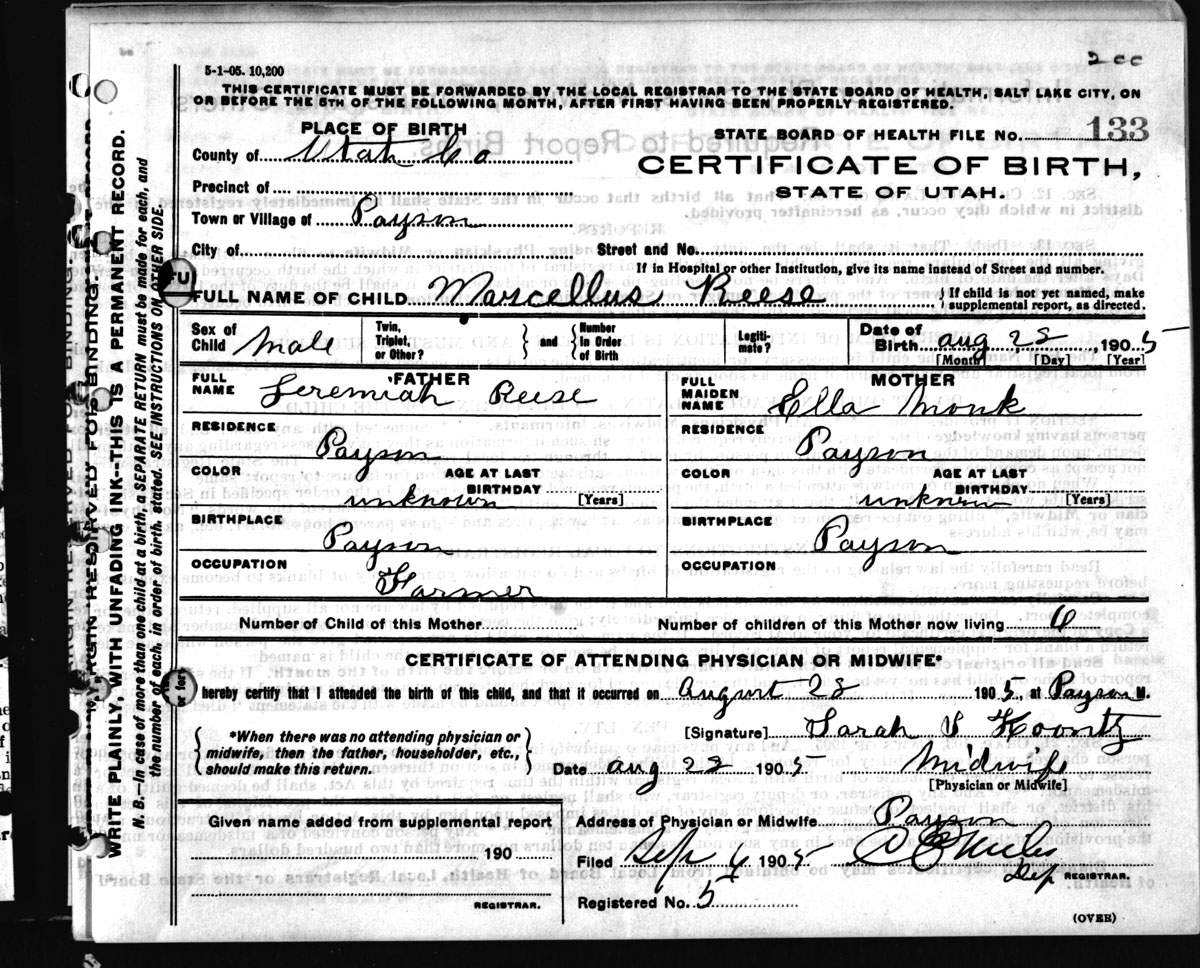 2 cc
5-1-05. 10,200
THIS CERTIFICATE MUST BE FORWARDED BY THE LOCAL REGISTRAR TO THE STATE BOARD OF HEALTH, SALT LAKE CITY, ON
OR BEFORE THE 5TH OF THE FOLLOWING MONTH, AFTER FIRST HAVING BEEN PROPERLY REGISTERED.
PLACE OF BIRTH
STATE BOARD OF HEALTH FILE No. 133
County of Utah Co
CERTIFICATE OF BIRTH,
STATE OF UTAH.
Precinct of
Town or Village of Payson
City of
Street and No.
If in Hospital or other Institution, give its name instead of Street and number.
FULL NAME OF CHILD. Marcellus Reese
{ If child is not yet named, make
supplemental report, as directed.
Sex of Child Male
Twin, Triplet, or Other?
} and {
Number In Order of Birth
Legiti-mate?
Date of Birth Aug 28 1905
[Month] [Day] [Year]
FATHER
FULL NAME Jeremiah Reese
RESIDENCE
Payson
COLOR
AGE AT LAST BIRTHDAY
unknown [Years]
BIRTHPLACE
Payson
OCCUPATION
Farmer
MOTHER
FULL MAIDEN NAME Ella Monk
RESIDENCE
Payson
COLOR
AGE AT LAST BIRTHDAY
unknown [Years]
BIRTHPLACE
Payson
OCCUPATION
Number of Child of this Mother
Number of children of this Mother now living
CERTIFICATE OF ATTENDING PHYSICIAN OR MIDWIFE*
I hereby certify that I attended the birth of this child, and that it occurred on August 28 1905, at Payson M.
*When there was no attending physician or
midwife, then the father, householder, etc.,
should make this return.
[Signature] Sarah S Koontz
Date Aug 1905 Midwife
[Physician or Midwife]
Given name added from supplemental report
190
REGISTRAR.
Address of Physician or Midwife Payson
Filed Sep 6 1905
Dep REGISTRAR.
Registered No. 5
(OVER)
MARGIN RESERVED FOR BINDING.
WRITE PLAINLY, WITH UNFADING INK--THIS IS A PERMANENT RECORD.
N. B.--In case of more than one child at a birth, a SEPARATE RETURN must be made for each, and
the number of each, in order of birth, stated. SEE INSTRUCTIONS ON OTHER SIDE.